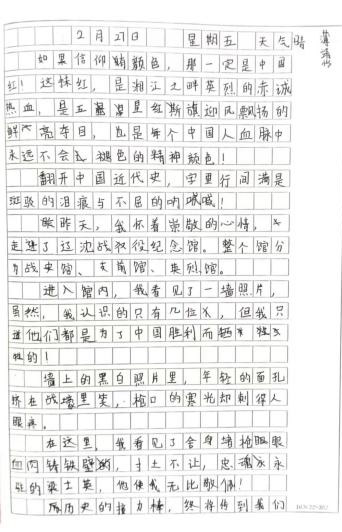 2月27日 星期五 天气晴
如果信仰有颜色，那一定是中国
红！这抹红，是湘江之畔英烈的赤诚
热血，是五星红斯旗迎风飘扬的
鲜亮夺目，也是每个中国人血脉中
永远不会褪色的精神颜色！
翻开中国近代史，字里行间满是
斑驳的泪痕与不屈的呐喊！
昨天，我怀着崇敬的心情，
走进了辽沈战役纪念馆。整个馆分
为战史馆、支前馆、英烈馆。
进入馆内，我看见了一墙照片，
虽然，我认识的只有几位，但我只
道他们都是为了中国胜利而牺
牲的！
墙上的黑白照片里，年轻的面孔
挤在战壕里笑，枪口的寒光却刺得人
眼疼。
在这里，我看见了舍身堵枪眼
血肉铸铁壁，寸土不让，忠魂永
驻的梁士英，他使我无比敬佩！
历史的接力棒，终将传到我们